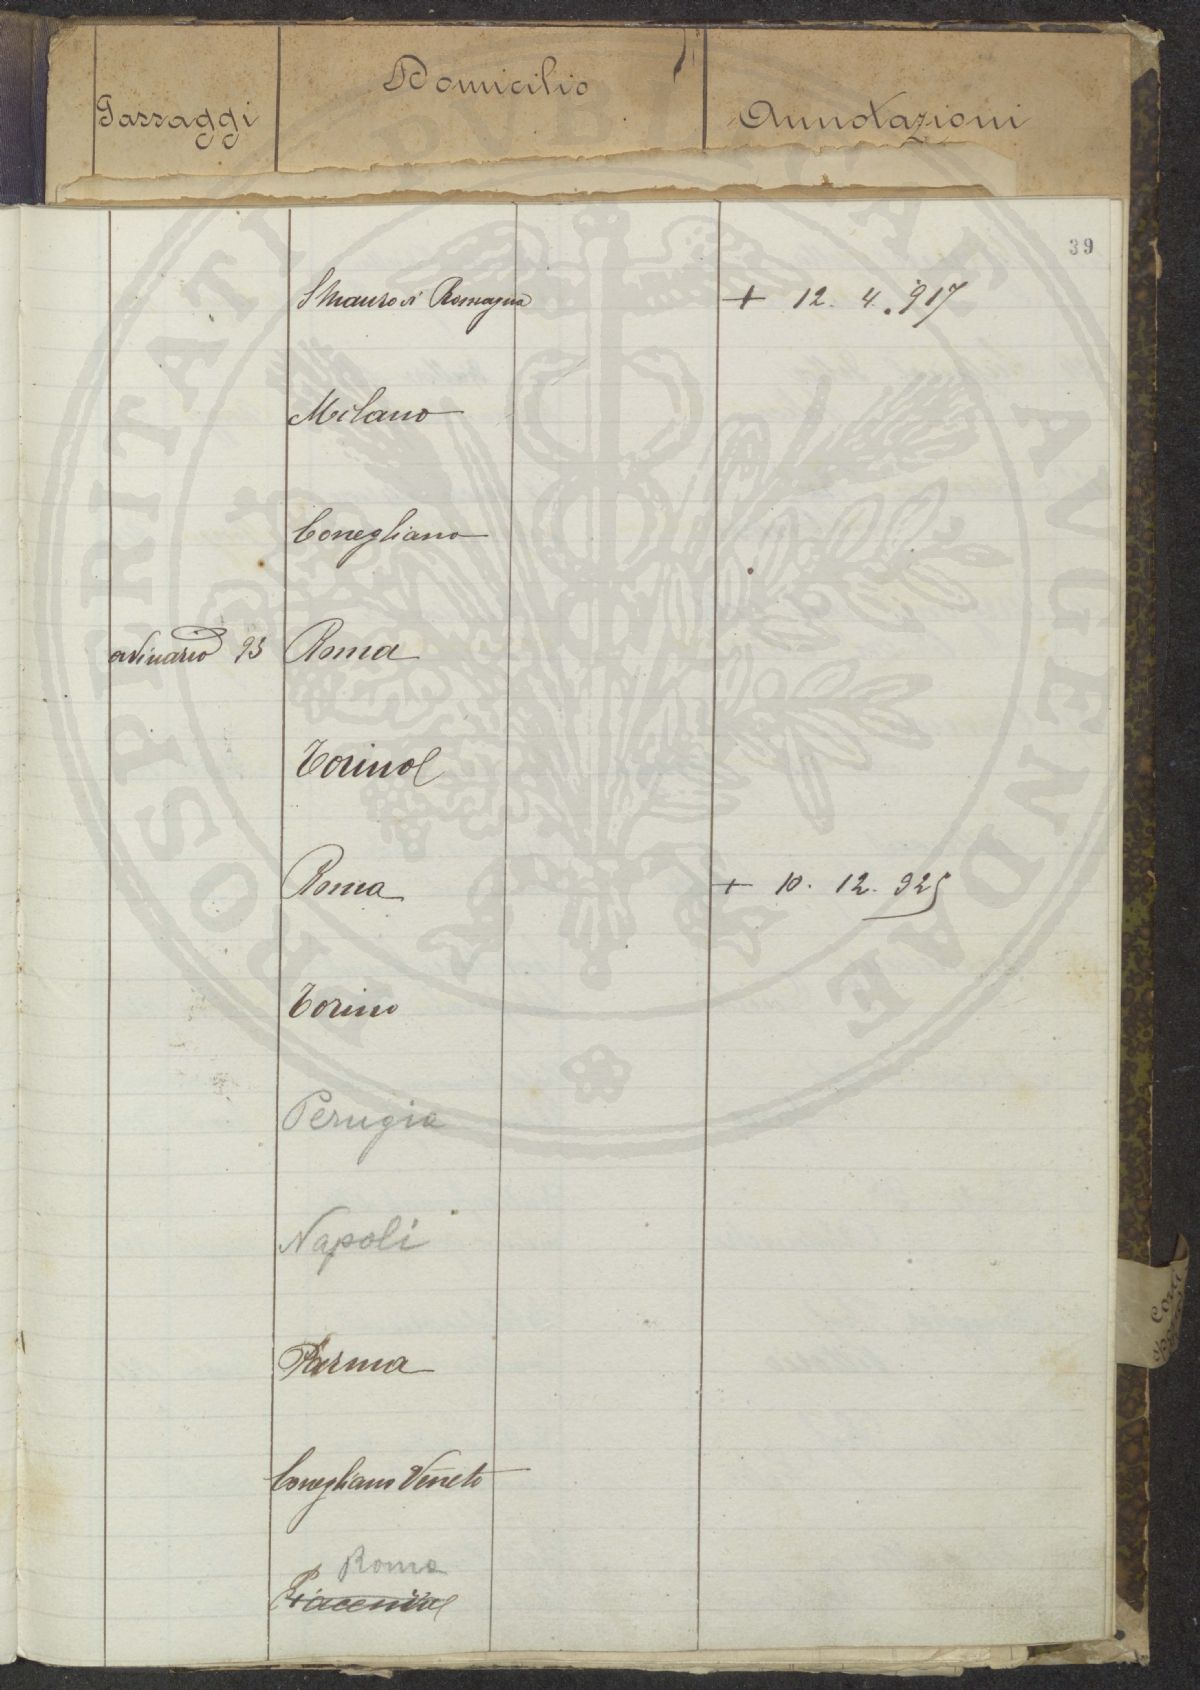 Passaggi Domicilio Annotazioni
39
S Mauro di Romagna + 12. 4. 917
Milano
Conegliano
ordinario 93 Roma
Torino
Roma + 10. 12. 925
Torino
Perugia
Napoli
Parma
Conegliano Veneto
Roma
Piacenza
PROSPERITATI PUBLICAE AVGENDAE